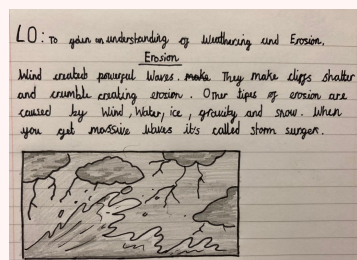 LO: To gain an understanding of Weathering and Erosion.
Erosion
Wind created powerful waves. make They make cliffs shatter
and crumble creating erosion. Other tipes of erosion are
caused by Wind, Water, ice, gravity and snow. When
you get massive waves it's called storm surges.